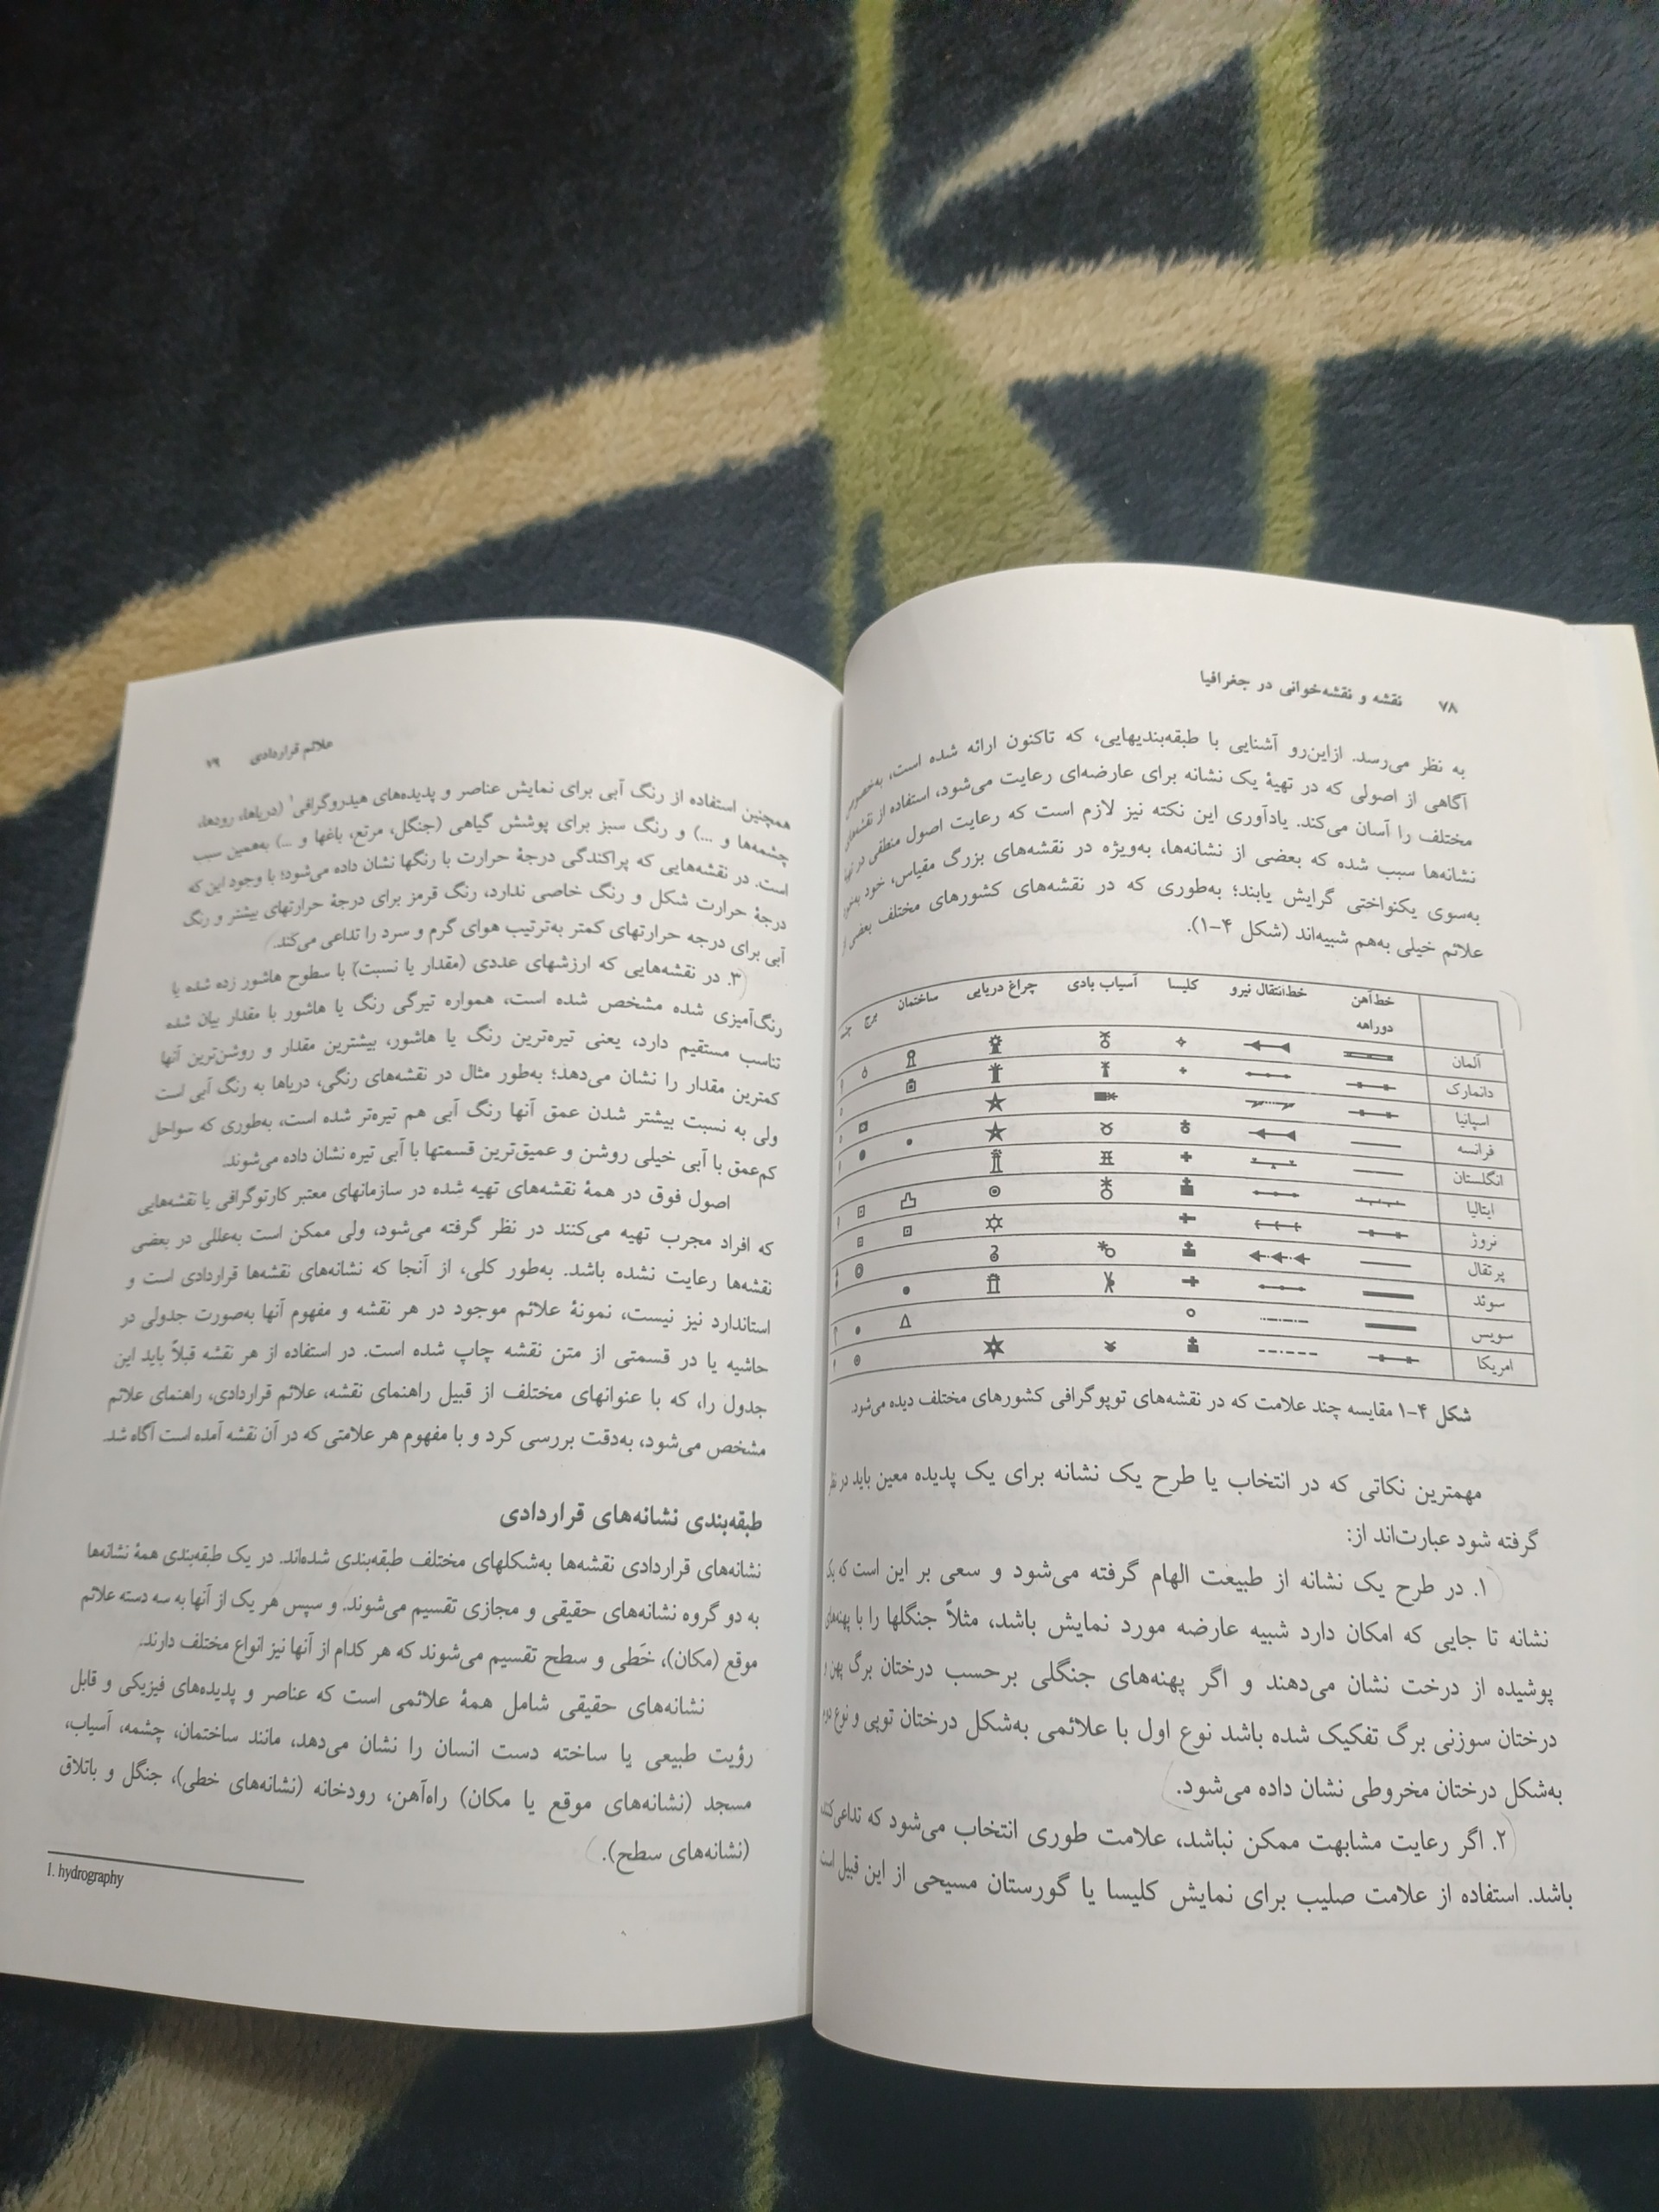 ۷۸ نقشه و نقشه‌خوانی در جغرافیا
به نظر می‌رسد. ازاین‌رو آشنایی با طبقه‌بندیهایی، که تاکنون ارائه شده است، به‌خصوص
آگاهی از اصولی که در تهیهٔ یک نشانه برای عارضه‌ای رعایت می‌شود، استفاده از نقشه‌های
مختلف را آسان می‌کند. یادآوری این نکته نیز لازم است که رعایت اصول منطقی در تهیه
نشانه‌ها سبب شده که بعضی از نشانه‌ها، به‌ویژه در نقشه‌های بزرگ مقیاس، خود
به‌سوی یکنواختی گرایش یابند؛ به‌طوری که در نقشه‌های کشورهای مختلف بعضی از
علائم خیلی به‌هم شبیه‌اند (شکل ۴-۱).
خط‌آهن دوراهه خط‌انتقال نیرو کلیسا آسیاب بادی چراغ دریایی ساختمان برج
آلمان
دانمارک
اسپانیا
فرانسه
انگلستان
ایتالیا
نروژ
پرتقال
سوئد
سویس
امریکا
شکل ۴-۱ مقایسه چند علامت که در نقشه‌های توپوگرافی کشورهای مختلف دیده می‌شود.
مهمترین نکاتی که در انتخاب یا طرح یک نشانه برای یک پدیده معین باید در نظر
گرفته شود عبارت‌اند از:
۱. در طرح یک نشانه از طبیعت الهام گرفته می‌شود و سعی بر این است که یک
نشانه تا جایی که امکان دارد شبیه عارضه مورد نمایش باشد، مثلاً جنگلها را با پهنه‌های
پوشیده از درخت نشان می‌دهند و اگر پهنه‌های جنگلی برحسب درختان برگ پهن و
درختان سوزنی برگ تفکیک شده باشد نوع اول با علائمی به‌شکل درختان توپی و نوع دوم
به‌شکل درختان مخروطی نشان داده می‌شود.
۲. اگر رعایت مشابهت ممکن نباشد، علامت طوری انتخاب می‌شود که تداعی‌کننده
باشد. استفاده از علامت صلیب برای نمایش کلیسا یا گورستان مسیحی از این قبیل است
علائم قراردادی ۷۹
همچنین استفاده از رنگ آبی برای نمایش عناصر و پدیده‌های هیدروگرافی۱ (دریاها، رودها،
چشمه‌ها و ...) و رنگ سبز برای پوشش گیاهی (جنگل، مرتع، باغها و ...) به‌همین سبب
است. در نقشه‌هایی که پراکندگی درجهٔ حرارت با رنگها نشان داده می‌شود؛ با وجود این که
درجهٔ حرارت شکل و رنگ خاصی ندارد، رنگ قرمز برای درجهٔ حرارتهای بیشتر و رنگ
آبی برای درجه حرارتهای کمتر به‌ترتیب هوای گرم و سرد را تداعی می‌کند.
۳. در نقشه‌هایی که ارزشهای عددی (مقدار یا نسبت) با سطوح هاشور زده شده یا
رنگ‌آمیزی شده مشخص شده است، همواره تیرگی رنگ یا هاشور با مقدار بیان شده
تناسب مستقیم دارد، یعنی تیره‌ترین رنگ یا هاشور، بیشترین مقدار و روشن‌ترین آنها
کمترین مقدار را نشان می‌دهد؛ به‌طور مثال در نقشه‌های رنگی، دریاها به رنگ آبی است
ولی به نسبت بیشتر شدن عمق آنها رنگ آبی هم تیره‌تر شده است، به‌طوری که سواحل
کم‌عمق با آبی خیلی روشن و عمیق‌ترین قسمتها با آبی تیره نشان داده می‌شوند.
اصول فوق در همهٔ نقشه‌های تهیه شده در سازمانهای معتبر کارتوگرافی یا نقشه‌هایی
که افراد مجرب تهیه می‌کنند در نظر گرفته می‌شود، ولی ممکن است به‌عللی در بعضی
نقشه‌ها رعایت نشده باشد. به‌طور کلی، از آنجا که نشانه‌های نقشه‌ها قراردادی است و
استاندارد نیز نیست، نمونهٔ علائم موجود در هر نقشه و مفهوم آنها به‌صورت جدولی در
حاشیه یا در قسمتی از متن نقشه چاپ شده است. در استفاده از هر نقشه قبلاً باید این
جدول را، که با عنوانهای مختلف از قبیل راهنمای نقشه، علائم قراردادی، راهنمای علائم
مشخص می‌شود، به‌دقت بررسی کرد و با مفهوم هر علامتی که در آن نقشه آمده است آگاه شد.
طبقه‌بندی نشانه‌های قراردادی
نشانه‌های قراردادی نقشه‌ها به‌شکلهای مختلف طبقه‌بندی شده‌اند. در یک طبقه‌بندی همهٔ نشانه‌ها
به دو گروه نشانه‌های حقیقی و مجازی تقسیم می‌شوند. و سپس هر یک از آنها به سه دسته علائم
موقع (مکان)، خَطی و سطح تقسیم می‌شوند که هر کدام از آنها نیز انواع مختلف دارند.
نشانه‌های حقیقی شامل همهٔ علائمی است که عناصر و پدیده‌های فیزیکی و قابل
رؤیت طبیعی یا ساخته دست انسان را نشان می‌دهد، مانند ساختمان، چشمه، آسیاب،
مسجد (نشانه‌های موقع یا مکان) راه‌آهن، رودخانه (نشانه‌های خطی)، جنگل و باتلاق
(نشانه‌های سطح).
1. hydrography